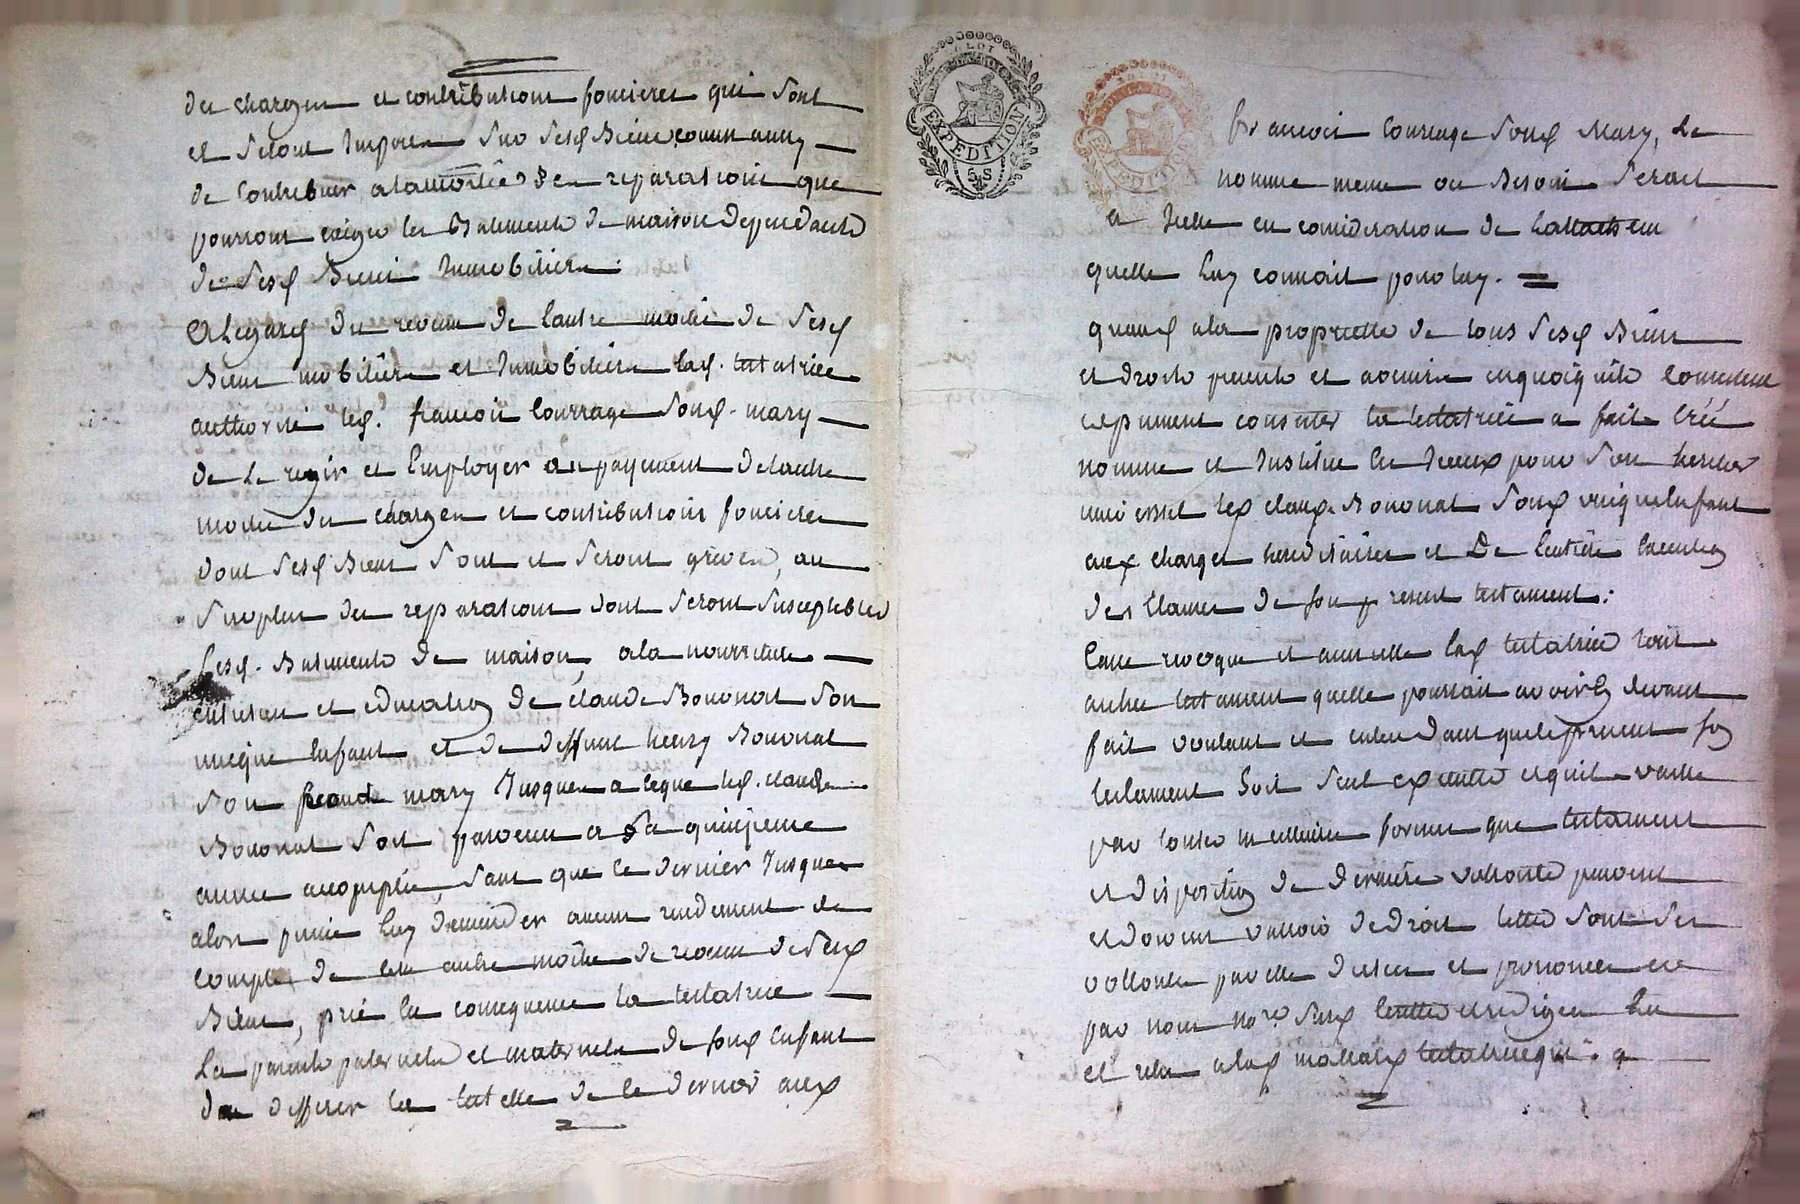 des charges et contributions foncieres qui sont
et seront Imposes sur sesd Biens comm auny
de Contribuer a la moitié des reparations que
pourront exiger les Batiments de maison dependants
de sesd Biens Immobiliers.
A legard du revenu de lautre moitié de sesd
Biens mobiliers et Immobiliers lad. testatrice
authorise led. francois Courrage sond. mary
de le regir et Employer au payement de lautre
moitié des charges et contributions foncieres
dont sesd Biens sont et seront grevés, au
surplus des reparations dont seront susceptibles
Lesd. Batiments de maison, a la nourriture
entretien et education de claude Bononat son
unique Enfant et de deffunt henry Bononat
son mary Jusques a ceque led. claude
Bononat soit parvenu a sa quinzieme
annee accomplie, sans que ce dernier Jusques
alors puisse luy demander aucun rendement de
compte de cette autre moitié de revenu de sesd
Biens, prie En consequence la testatrice
Les parents paternels et maternels de sond Enfant
de differer la tutelle de ce dernier aud
EXPEDITION
5 S
francois Courrage sond Mary, Le
nomme meme ou Besoin serait
a Icelle en consideration de Lattachem
quelle luy connait pour luy.
quand a la proprietté de tous sesd Biens
et droits presents et avenirs enquoiquils Consistent
et puissent consister la testatrice a fait Créé
nomme et Institue En Iceux pour son heritier
universel led claude Bononat sond unique Enfant
aux charges hereditaires et De lentiere Execution
des Clauses de son present testament:
Casse revoque et annulle lad testatrice tout
autre testament quelle pourrait avoir cy devant
fait voulant et entendant que le present son
testament soit seul executté et quil vaille
par toutes meilleures formes que testament
et disposition de derniere vollonté peuvent
et doivent valloir de droit telles sont ses
vollontés par elle dictées et prononcées
par nous no.re susd ecrittes et redigees
et relu a lad mariee testatrice qui